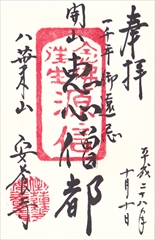 奉拝
平成二十八年
十月十日
一千年御遠忌
開山
恵心僧都
源信
安養寺